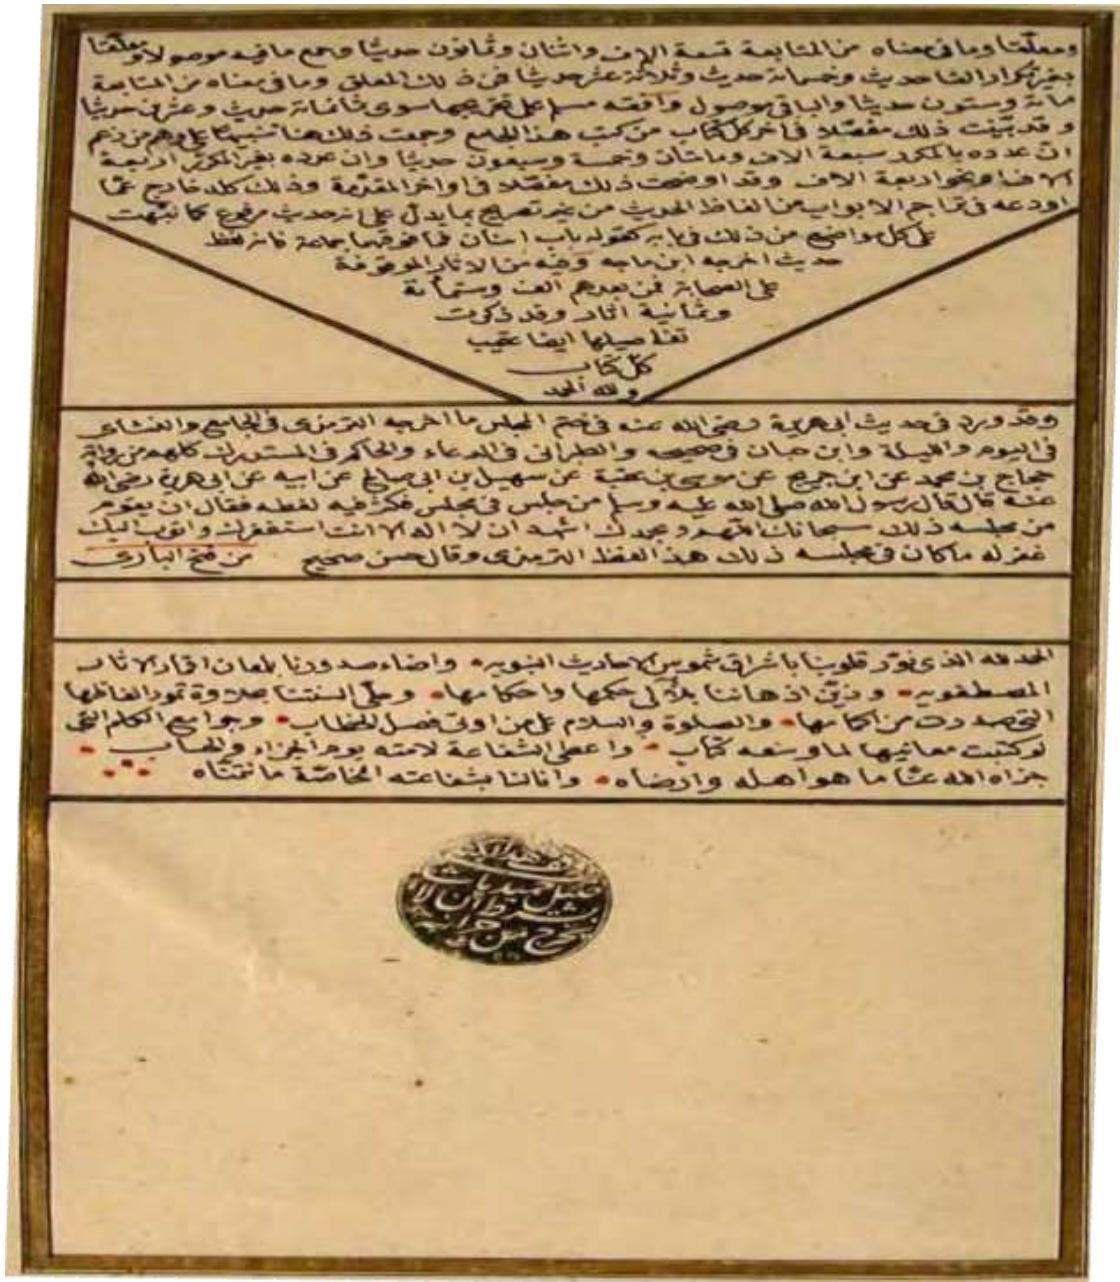 ومعلّقا وما فى معناه من المتابعة تسعة الاف واثنان وثمانون حديثا وجميع ما فيه موصولا ومعلّقا
بغير تكرار الفا حديث وخمسمائة حديث وثلاثة عشر حديثا فمن ذلك المعلق وما فى معناه من المتابعة
مائة وستون حديثا والباقى موصول وافقه مسلم على تخريجها سوى ثمانمائة حديث وعشرين حديثا
وقد بيّنت ذلك مفصّلا فى اخر كل كتاب من كتب هذا الجامع وجمعت ذلك هنا تنبيها على وهم من زعم
ان عدده بالمكرر سبعة الاف ومائتان وخمسة وسبعون حديثا وان عدده بغير المكرر اربعة
الاف او نحو اربعة الاف وقد اوضحت ذلك مفصّلا فى اواخر المقدّمة وذلك كله خارج عمّا
اودعه فى تراجم الابواب من الفاظ الحديث من غير تصريح بما يدلّ على انه حديث مرفوع كما نبّهت
على كل مواضع من ذلك فى بابه كقوله باب اثنان فما فوقهما جماعة فانه لفظ
حديث اخرجه ابن ماجه وفيه من الاثار الموقوفة
على الصحابة فمن بعدهم الف وستمائة
وثمانية اثار وقد ذكرت
تفاصيلها ايضا عقيب
كل كتاب
ولله الحمد
وقد ورد فى حديث ابى هريرة رضى الله عنه فى ختم المجلس ما اخرجه الترمزى فى الجامع والنسائى
فى اليوم والليلة وابن حبان فى صحيحه والطبرانى فى الدعاء والحاكم فى المستدرك كلهم من رواية
حجاج بن محمد عن ابن جريج عن موسى بن عقبة عن سهيل بن ابى صالح عن ابيه عن ابى هريرة رضى الله
عنه قال قال رسول الله صلى الله عليه وسلم من جلس فى مجلس فكثر فيه لغطه فقال ان يقوم
من مجلسه ذلك سبحانك اللهم وبحمدك اشهد ان لا اله الا انت استغفرك واتوب اليك
غفر له ما كان فى مجلسه ذلك هذا لفظ الترمزى وقال حسن صحيح من فتح البارى
الحمد لله الذى نوّر قلوبنا باشراق شموس الاحاديث النبويه واضاء صدورنا بلمعان اقمار الاثار
المصطفويه وزيّن اذهاننا بلآلى حكمها واحكامها وحلّى السنتنا بحلاوة تمور الفاظها
التى صدرت من اكمامها والصلوة والسلام على من اوتى فصل الخطاب وجوامع الكلم التى
لو كتبت معانيها لما وسعه كتاب واعطى الشفاعة لامته يوم الجزاء والحساب
جزاه الله عنّا ما هو اهله وارضاه وانالنا بشفاعته الخاصّة ما نتمنّاه